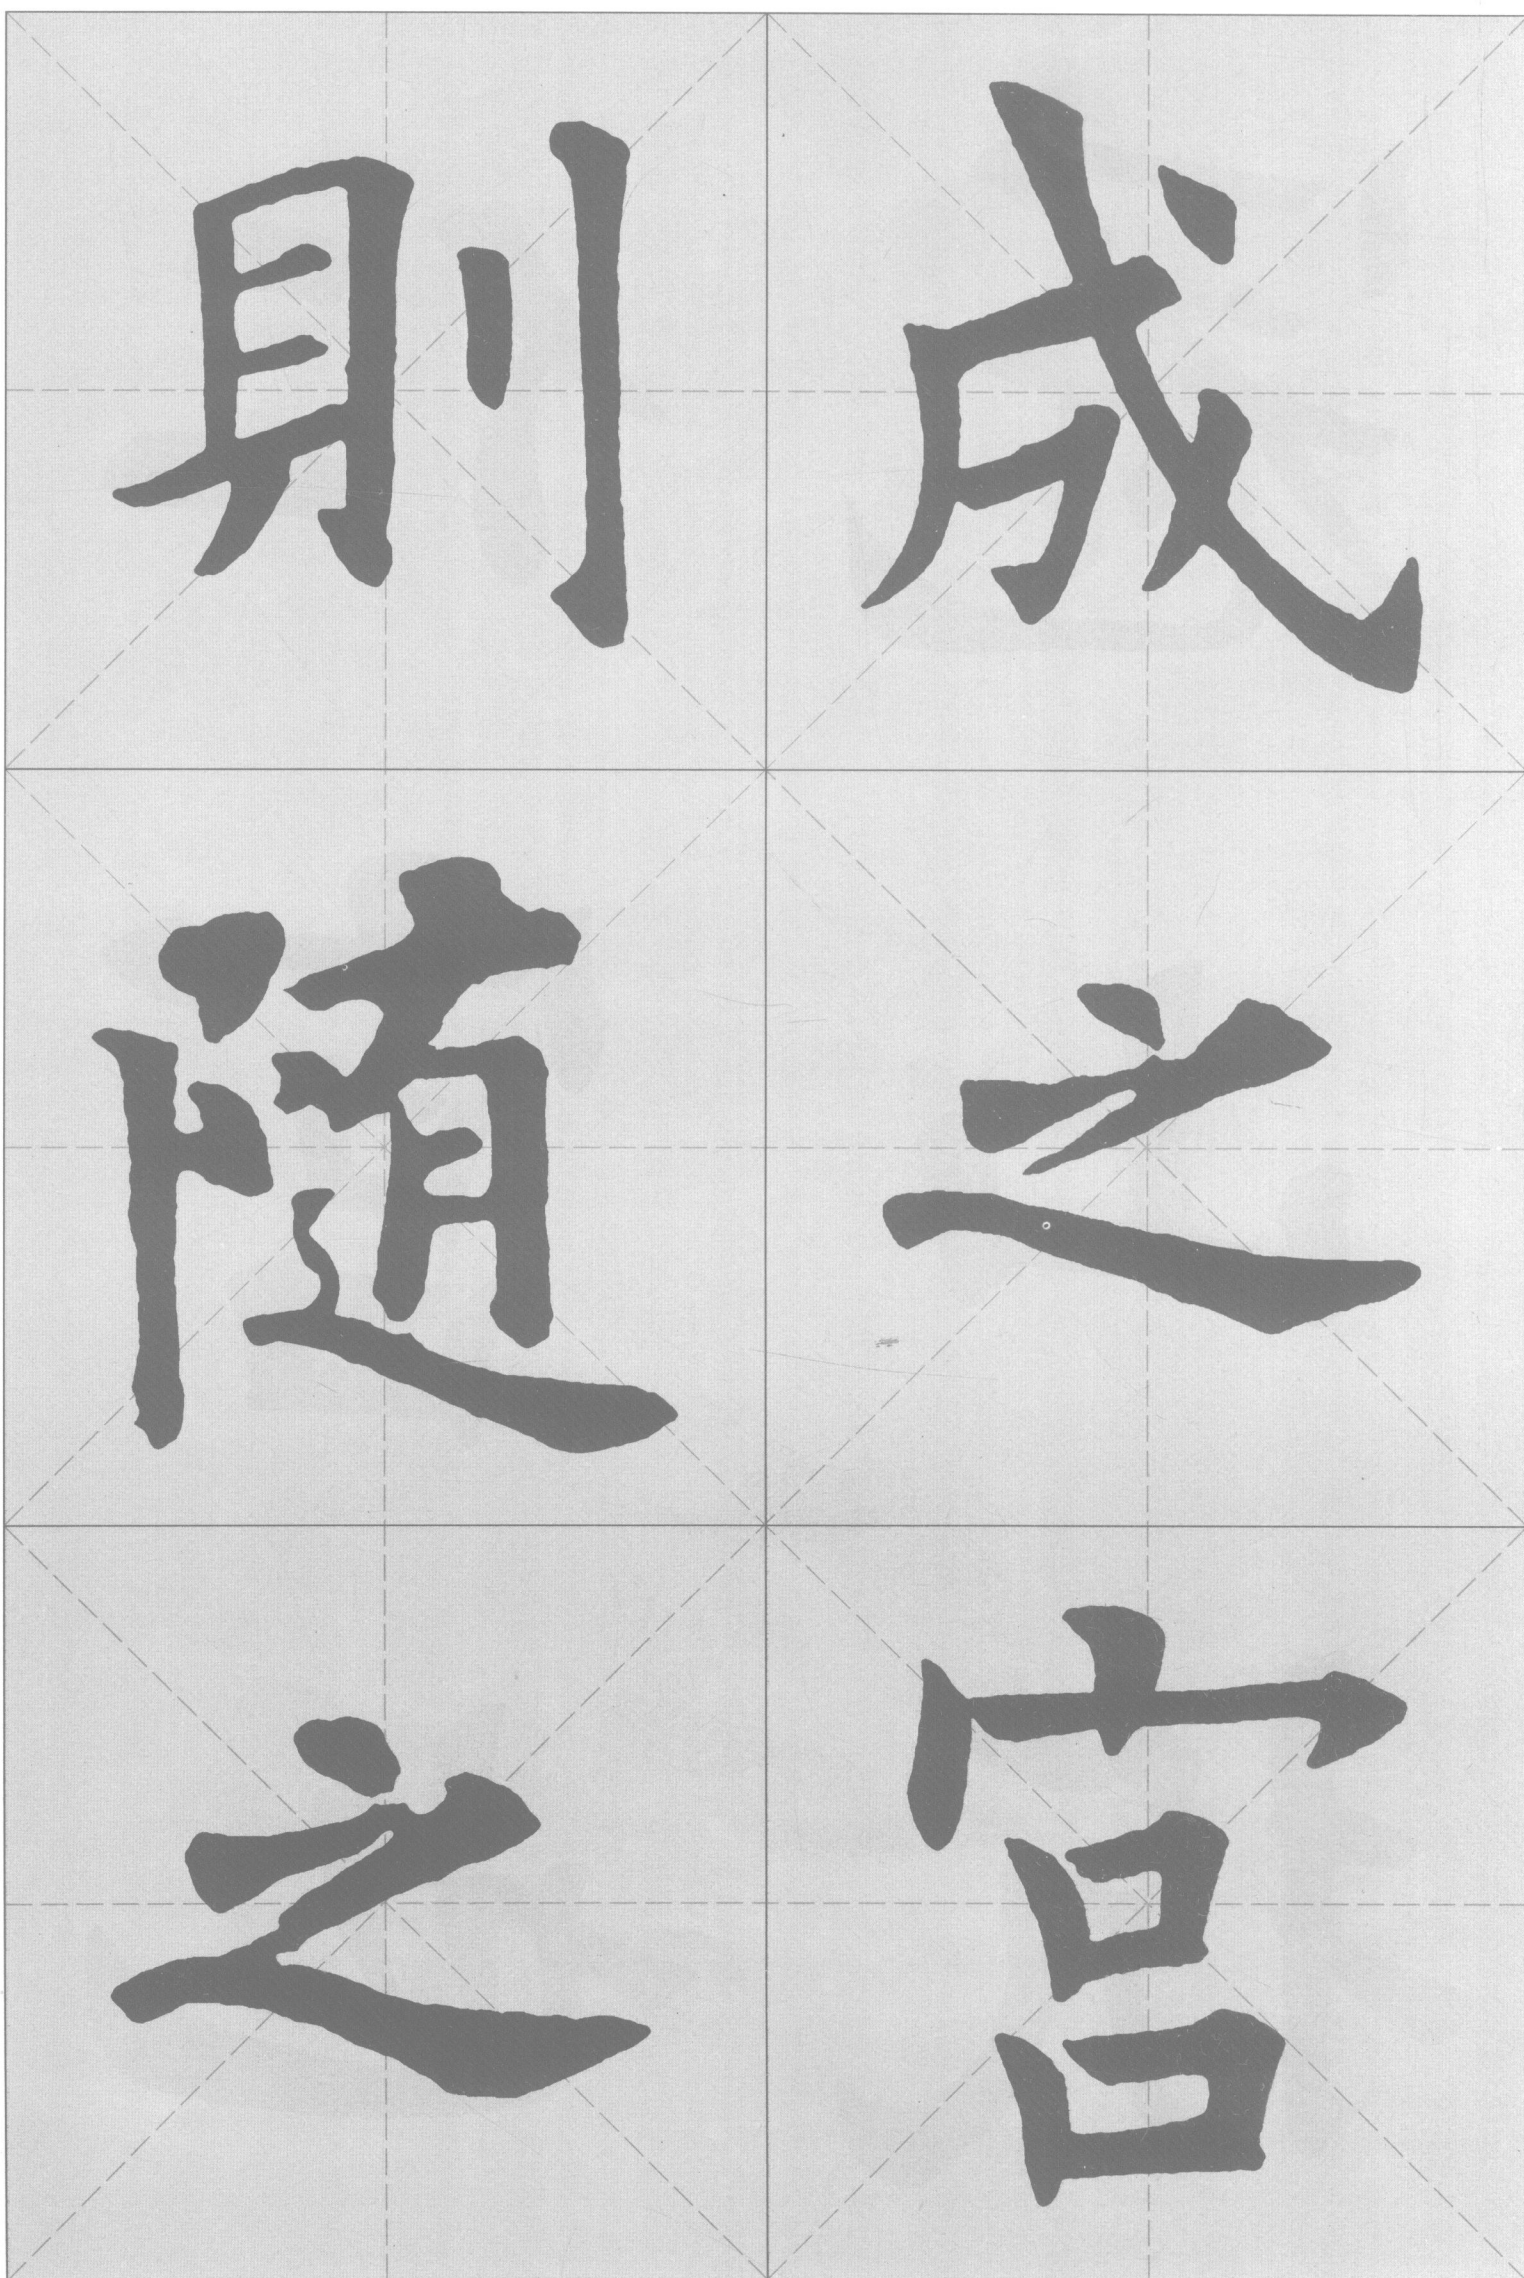 成之宮
則随之